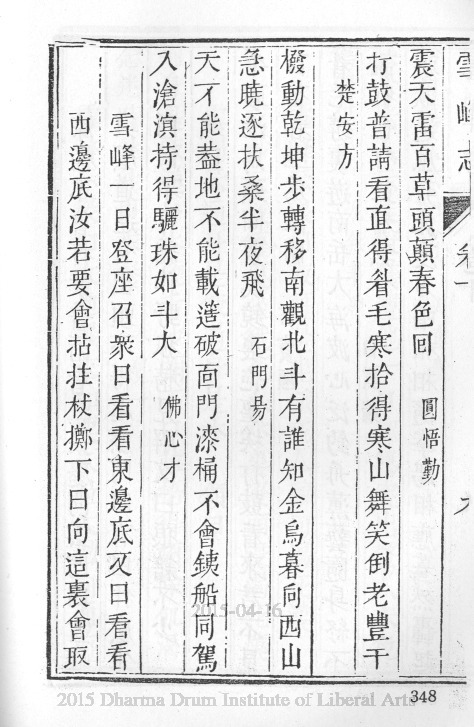 雪峰志 卷一 九
震天雷百草頭顛春色回 圓悟勤
打鼓普請看直得眉毛寒拾得寒山舞笑倒老豐干
楚安方
撥動乾坤步轉移南觀北斗有誰知金烏暮向西山
急曉逐扶桑半夜飛 石門易
天不能蓋地不能載築破面門漆桶不會鐵船同駕
入滄溟持得驪珠如斗大 佛心才
雪峰一日登座召衆曰看看東邊底又曰看看
西邊底汝若要會拈拄杖擲下曰向這裏會取
2015-04-16
348
2015 Dharma Drum Institute of Liberal Arts